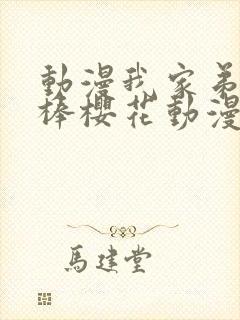 動漫我家弟
棒櫻花動漫
馬建堂